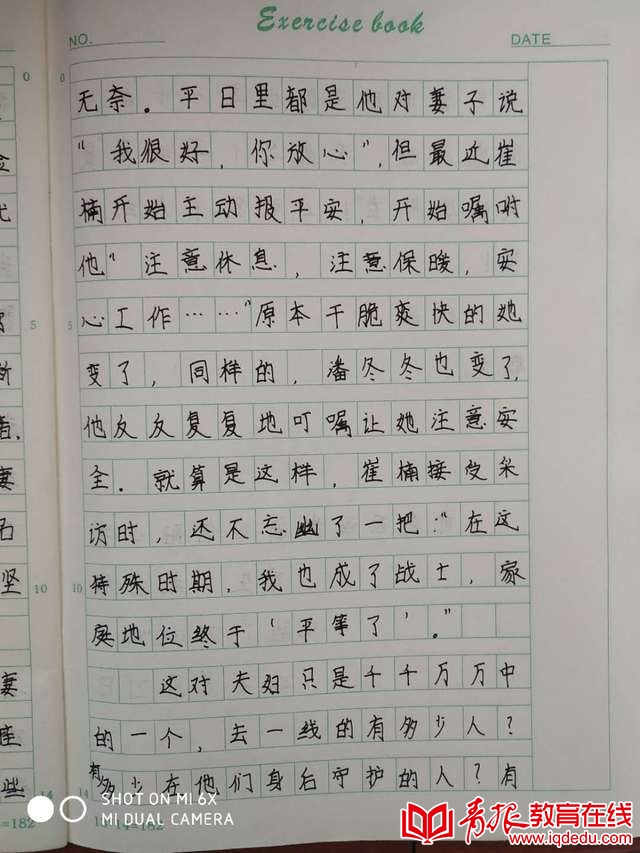 Exercise book
NO.
DATE
无奈。平日里都是他对妻子说
“我很好，你放心”，但最近崔
楠开始主动报平安，开始嘱咐
他“注意休息，注意保暖，安
心工作……”原本干脆爽快的她
变了，同样的，潘冬冬也变了，
他反反复复地叮嘱让她注意安
全．就算是这样，崔楠接受采
访时，还不忘幽了一把：“在这
特殊时期，我也成了战士，家
庭地位终于‘平等了’。”
这对夫妇只是千千万万中
的一个，去一线的有多少人？
有多少在他们身后守护的人？有
0
0
5
5
10
10
14
14
=182
13×14=182
妻
石
坚
妻
些
SHOT ON MI 6X
MI DUAL CAMERA
青报教育在线
www.iqdedu.com